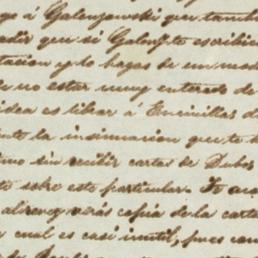 go á Galenzowski que tamb
edir que si Galonfte escribie
tacion y lo hagas de un mod
de no estar muy enterado de
idea es librar á Encinillas d
nte la insinuacion que te h
timo sin recibir cartas de Dubos
to sobre este particular. Te aco
alirency verás copia de la carta
cual es casi inutil, pues con